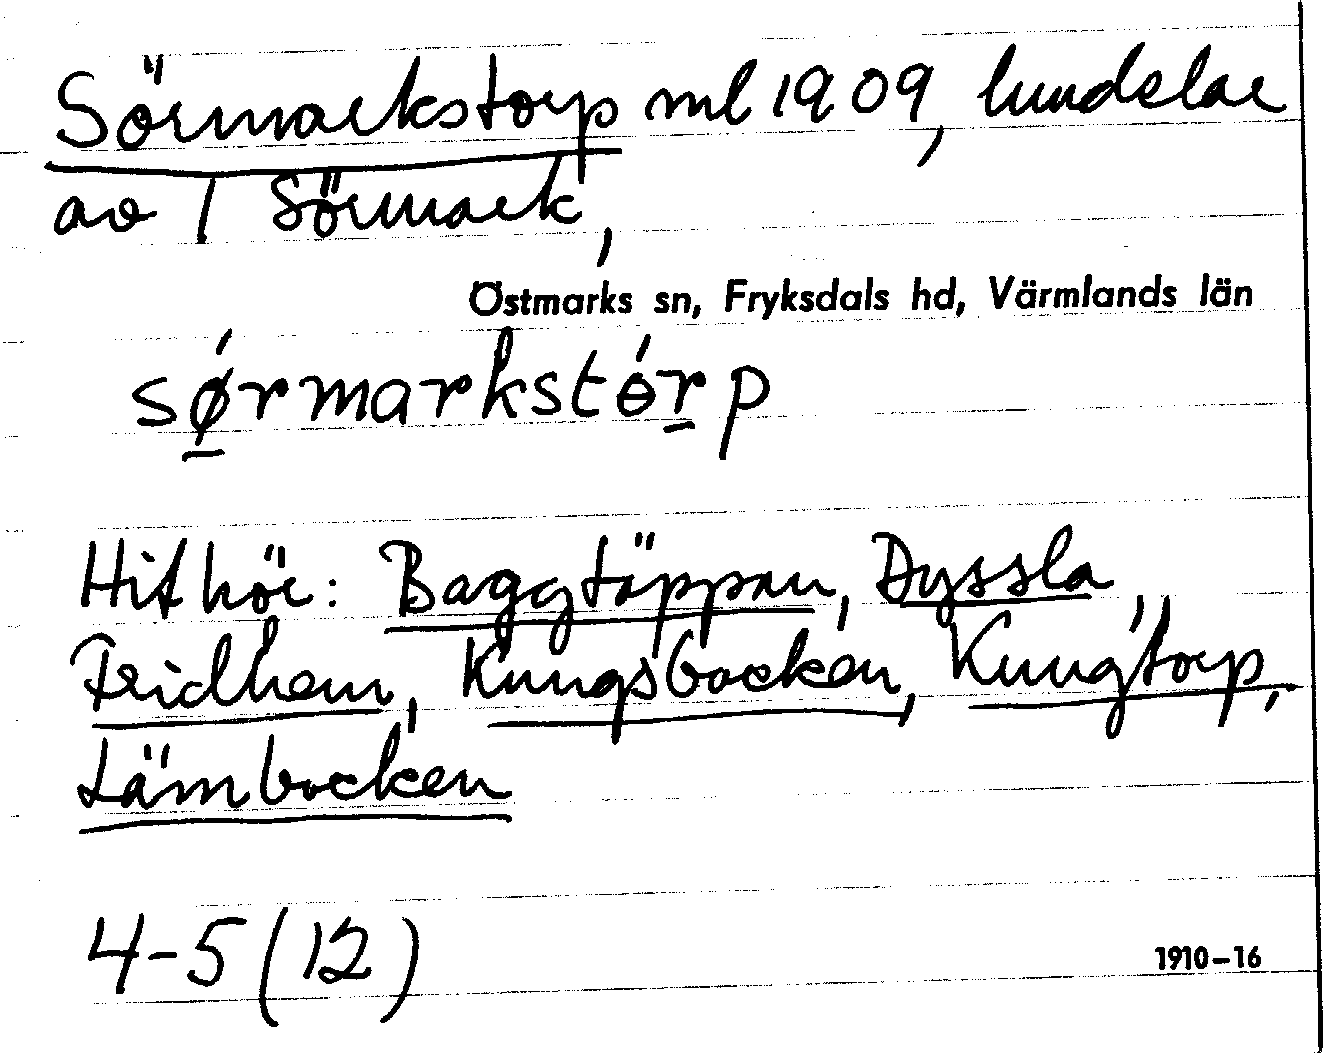 Sörmarkstorp ml 1909, lundelar
av 1 Sörmark,
Östmarks sn, Fryksdals hd, Värmlands län
sǿrmarkstɵ́rp
Hit hör: Baggtäppan, Dyssla,
Fridhem, Kungsbacken, Kungtorp,
Lämbacken
4-5 (12)
1910-16